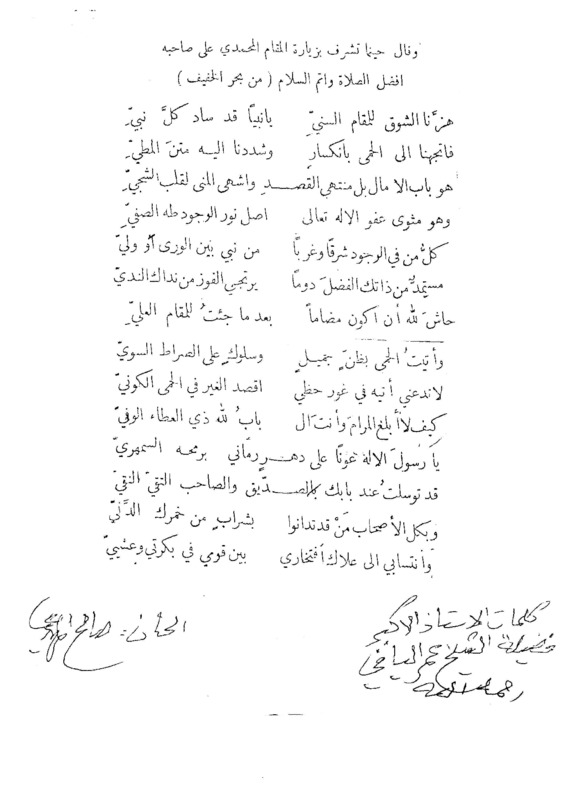 وقال حينما تشرف بزيارة المقام المحمدي على صاحبه
افضل الصلاة واتم السلام ( من بحر الخفيف )
هزَّنا الشوق للمقام السنيّ يانبيًّا قد ساد كلَّ نبيّ
فاتجهنا الى الحمى بانكسارٍ وشددنا اليه متنَ المطيّ
هو باب الآمال بل منتهى القصد واشهى المنى لقلب الشجيّ
وهو مثوى عفو الاله تعالى اصل نور الوجود طه الصفيّ
كلُّ من في الوجود شرقًا وغربًا من نبي بين الورى أو وليّ
مستمدٌّ من ذاتك الفضلَ دومًا يرتجي الفوز من نداك النديّ
حاشَ لله أن اكون مضاماً بعد ما جئتُ للمقام العليّ
وأتيتُ الحمى بظنّ جميلٍ وسلوكٍ على الصراط السويّ
لاتدعني أتيه في غور حظي اقصد الغير في الحمى الكونيّ
كيف لا أبلغ المرام وأنت ال بابُ لله ذي العطاء الوفيّ
يا رسولَ الاله غوثًا على دهرٍ رماني برمحه السمهريّ
قد توسلتُ عند بابك بالصدّيق والصاحب التقيّ النقيّ
وبكل الأصحاب مَنْ قد تدانوا بشرابٍ من خمرك الدَّنيّ
وأنتسابي الى علاك افتخاري بين قومي في بكرتي وعشييّ
كلمات الاستاذ الاكبر
فضيلة الشيخ عمر اليافي
رحمه الله
الحان: صالح